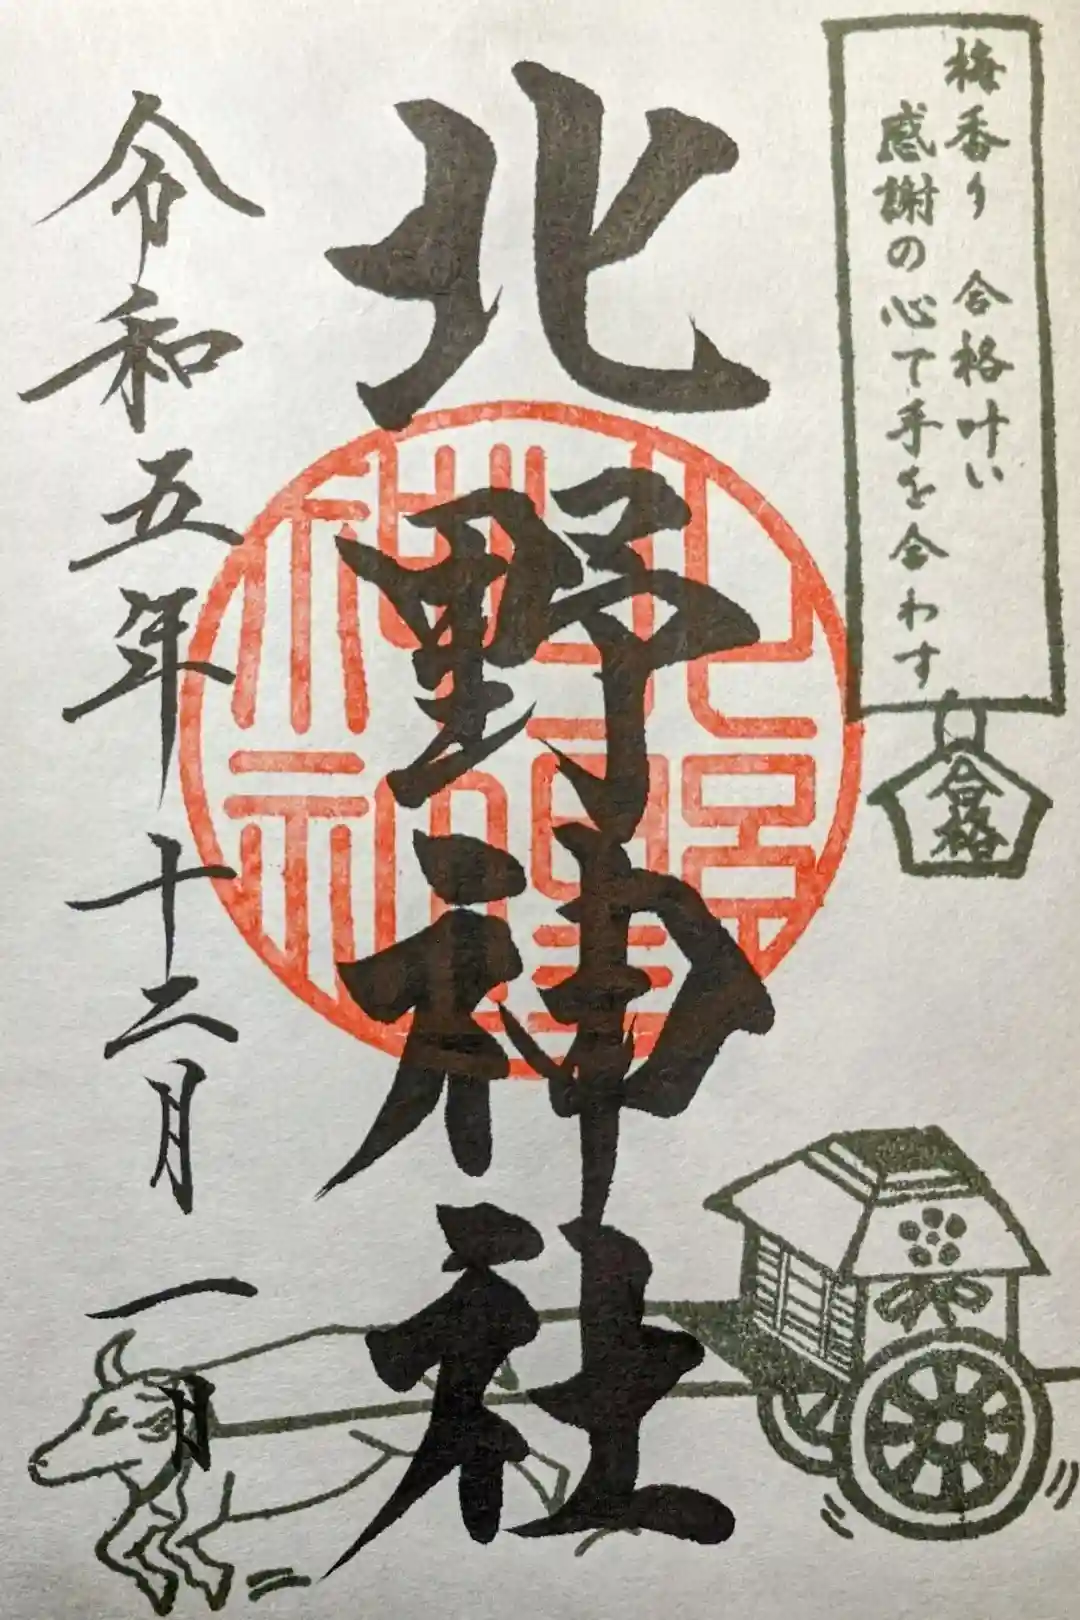 梅香り 合格叶い
感謝の心て手を合わす
合格
北野神社
令和五年十二月一日